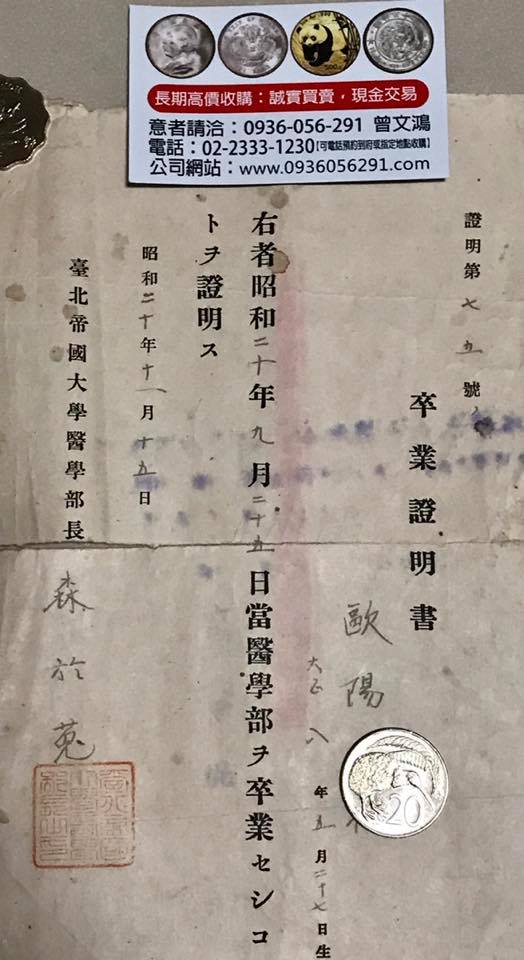 長期高價收購：誠實買賣，現金交易
意者請洽：0936-056-291 曾文鴻
電話：02-2333-1230【可電話預約到府或指定地點收購】
公司網站：www.0936056291.com
證明第七五號
卒業證明書
歐陽
大正八年五月二十七日生
右者昭和二十年九月二十五日當醫學部ヲ卒業セシコ
トヲ證明ス
昭和二十年十一月十五日
臺北帝國大學醫學部長 森於菟
20